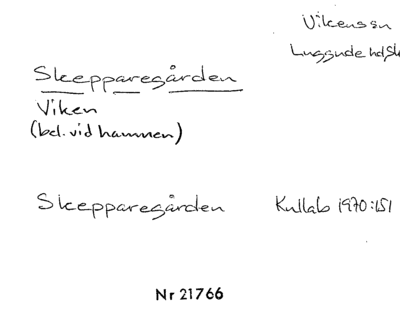 Vikens sn
Luggude hd, Sk
Skepparegården
Viken
(bel. vid hamnen)
Skepparegården Kullab 1970:151
Nr 21766